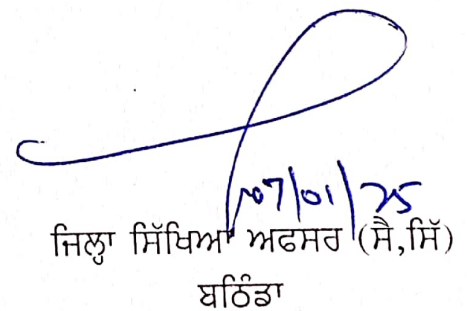 07/01/25
ਜਿਲ੍ਹਾ ਸਿੱਖਿਆ ਅਫਸਰ (ਸੈ,ਸਿੱ)
ਬਠਿੰਡਾ